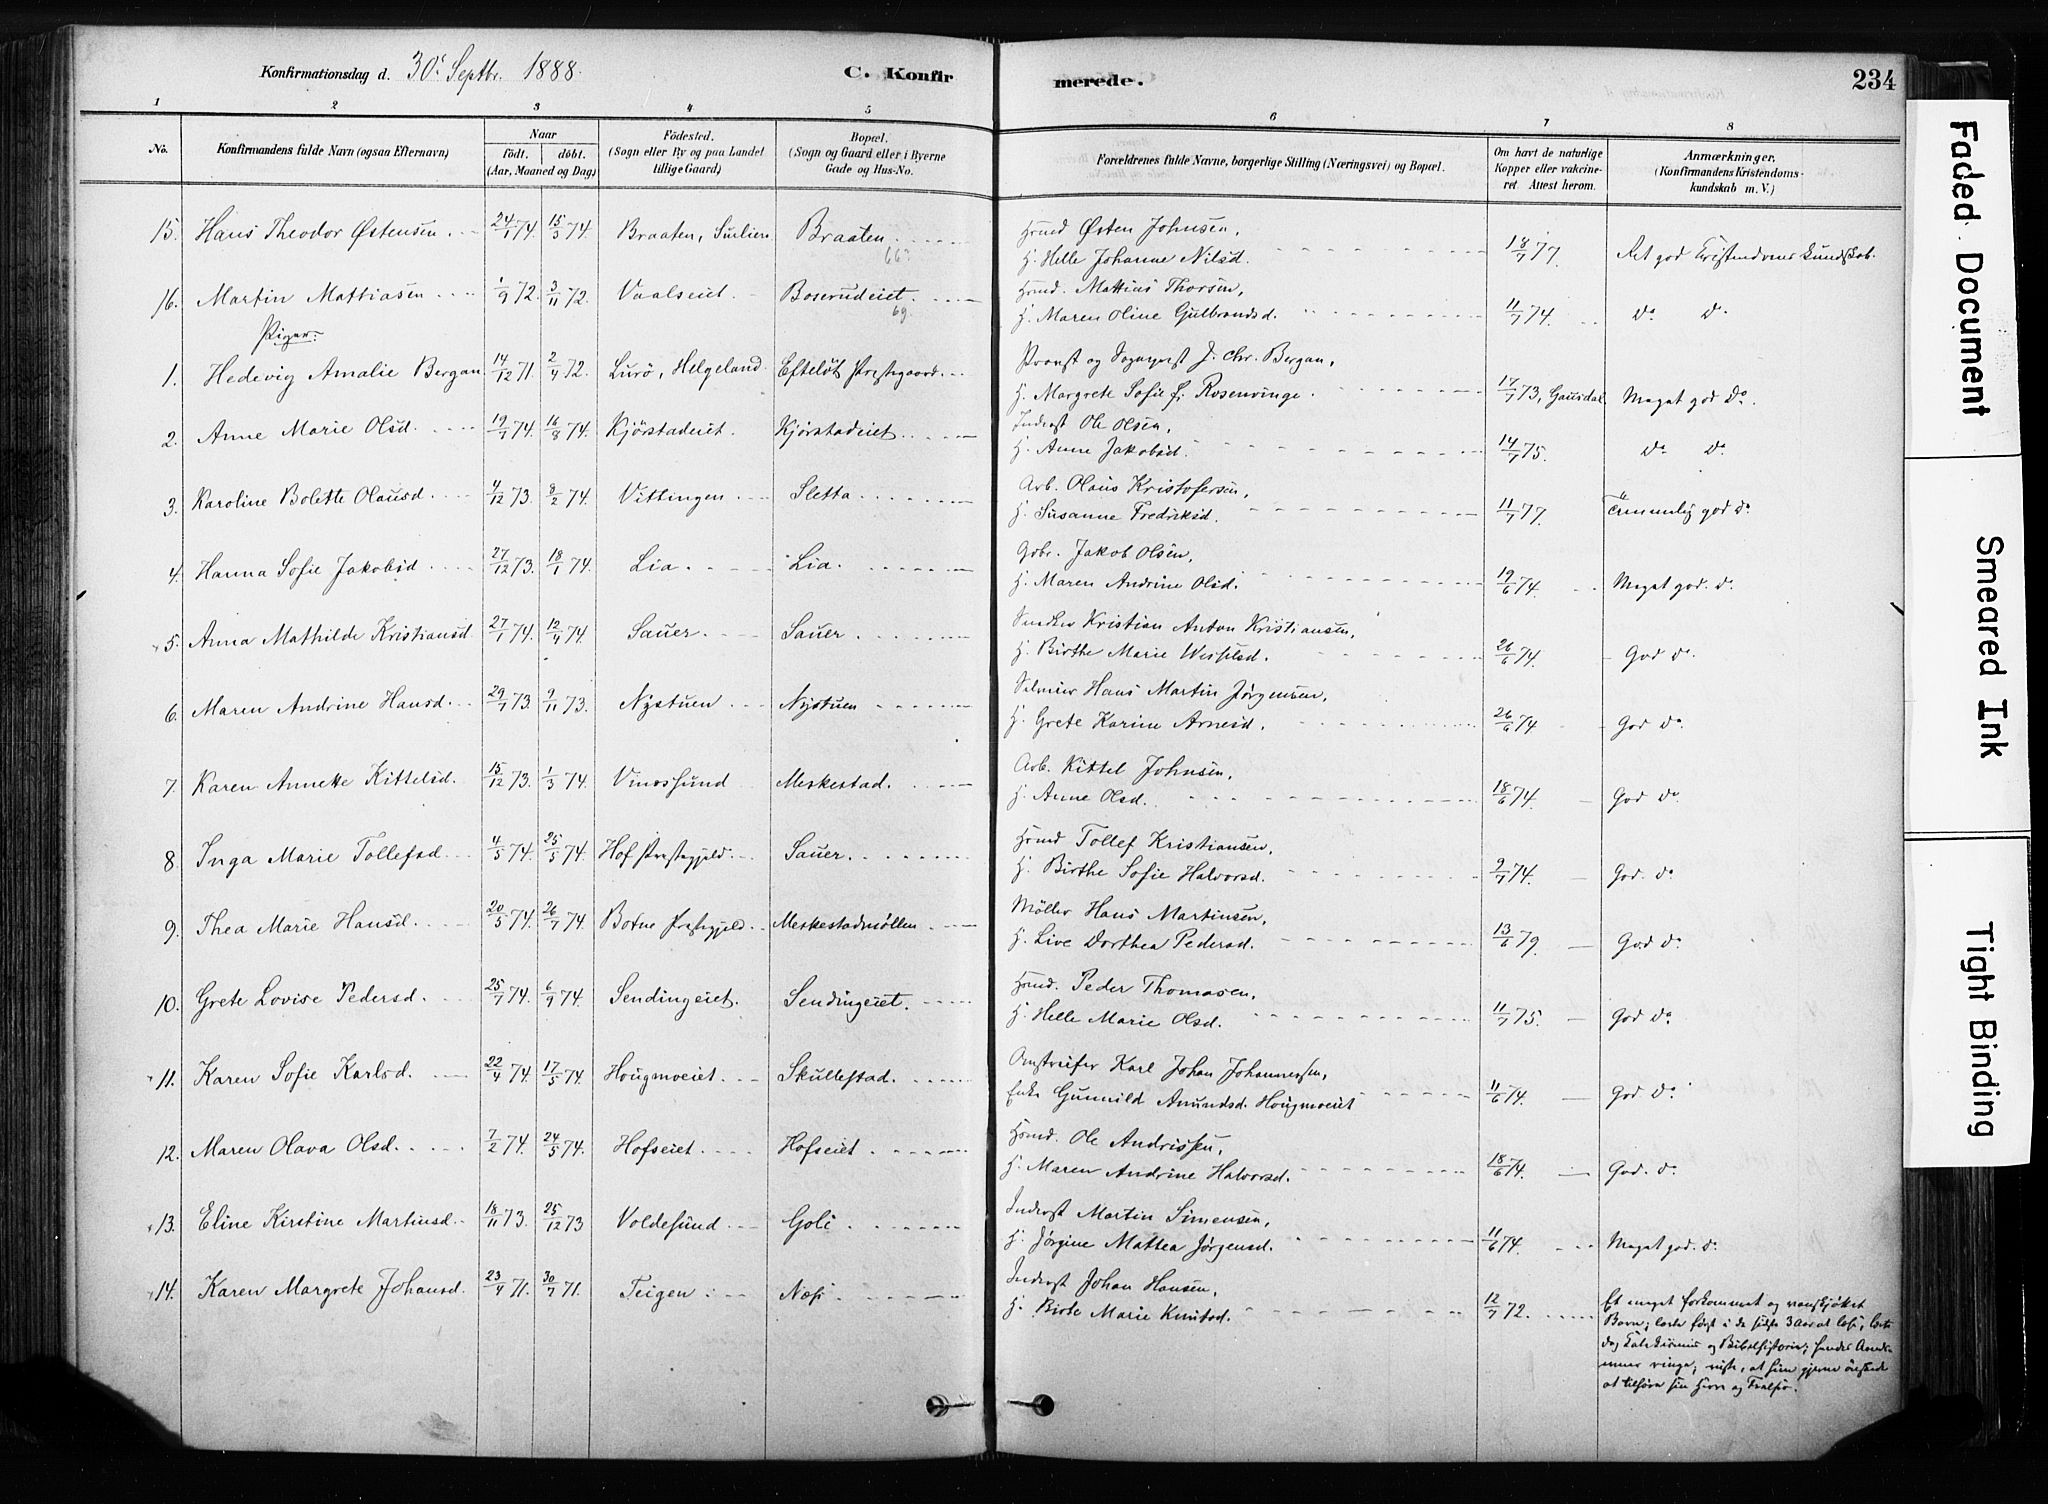 Konfirmationsdag d. 30te Septbr. 1888. C. Konfir merede. 234
1 2 3 4 5 6 7 8
No. Konfirmandens fulde Navn (ogsaa Efternavn) Naar födt. döbt. (Aar, Maaned og Dag) Födested. (Sogn eller By og paa Landet tillige Gaard) Bopæl. (Sogn og Gaard eller i Byerne Gade og Hus-No. Forældrenes fulde Navne, borgerlige Stilling (Næringsvei) og Bopæl. Om havt de naturlige Kopper eller vakcineret. Attest herom. Anmærkninger. (Konfirmandens Kristendomskundskab m. V.)
15. Hans Theodor Østensen 24/1 74. 15/3 74. Braaten, Braaten Hmd Østen Johnsen,
H. Helle Johanne Nilsd. 18/7 77. Ret god Kristendomskundskab.
16. Martin Mattiasen 1/9 72. 3/11 72. Vaalseiet Boserudeiet Hmd. Mattias Thorsen,
69.
H. Maren Oline Gulbrandsd. 11/7 74. do do
Piger:
1. Hedevig Amalie Bergan 14/12 71. 2/4 72. Lurö, Helgeland Efteløt Prestegaard Provst og Sogneprest J. Chr. Bergan,
H. Margrete Sofie f. Rosenvinge 17/7 73, Gausdal Meget god do
2. Anne Marie Olsd. 19/7 74. 16/8 74. Kjörstadeiet. Kjörstadeiet Inderst Ole Olsen,
H. Anne Jakobsd. 14/7 75. do do
3. Karoline Bolette Olausd. 4/12 73. 8/2 74. Vittingen Sletta Arb. Olaus Kristofersen,
H. Susanne Fredriksd. 11/7 77. Temmelig god do
4. Hanna Sofie Jakobsd 27/12 73. 18/1 74. Lia Lia. Gbr. Jakob Olsen,
H. Maren Andrine Olsd. 19/6 74. Meget god. do
5. Anna Mathilde Kristiansd 27/1 74. 12/4 74. Sauer Sauer Kristian Anton Kristiansen,
H. Birthe Marie 26/6 74. God do
6. Maren Andrine Hansd. 29/7 73. 9/11 73. Nystuen Nystuen Hans Martin Jørgensen,
H. Grete Karine Arnesd. 26/6 74 God do
7. Karen Annette Kittelsd. 15/12 73. 1/3 74. Vinossund Meskestad Arb. Kittel Johnsen,
H. Anne Olsd. 18/6 74. God do
8. Inga Marie Tollefsd. 4/5 74. 25/5 74. Hof Prestegjeld Sauer Hmd Tollef Kristiansen,
H. Birthe Sofie Halvorsd. 9/7 74. God. do
9. Thea Marie Hansd. 20/5 74. 26/7 74. Botne Prestegjeld Meskestadmøllen Möller Hans Martinsen,
H. Live Dorthea Pedersd. 13/6 79 God do
10. Grete Lovise Pedersd. 25/7 74. 6/9 74. Sendingeiet. Sendingeiet. Hmd. Peder Thomasen,
H. Helle Marie Olsd. 11/7 75. God do
11. Karen Sofie Karlsd. 22/4 74. 17/5 74. Hougmoeiet Skullestad Omstreifer Karl Johan Johannessen,
Enke Gunnild Amundsd. Hougmoeiet 11/6 74. God do
12. Maren Olava Olsd. 7/2 74. 24/5 74. Hofseiet Hofseiet Hmd. Ole Andrissen,
H. Maren Andrine Halvorsd. 18/6 74. God. do
13. Eline Kirstine Martinsd. 18/11 73. 25/12 73 Voldesund Goli Inderst Martin Simensen,
H. Jørgine Mattea Jørgensd. 11/6 74. Meget god. do
14. Karen Margrete Johansd. 23/4 71. 30/7 71. Teigen Næsi Inderst Johan Hansen,
H. Birte Marie Knutsd. 12/7 72. Et meget forkommet og vanskjøttet
Barn; lærte først i de sidste 3 Aar at læse, lærte
dog Katekismus og Bibelhistorie; hendes
ringe; viste, at hun gjerne ønskede
at tilhöre sin Herre og Frelser.
Faded Document
Smeared Ink
Tight Binding